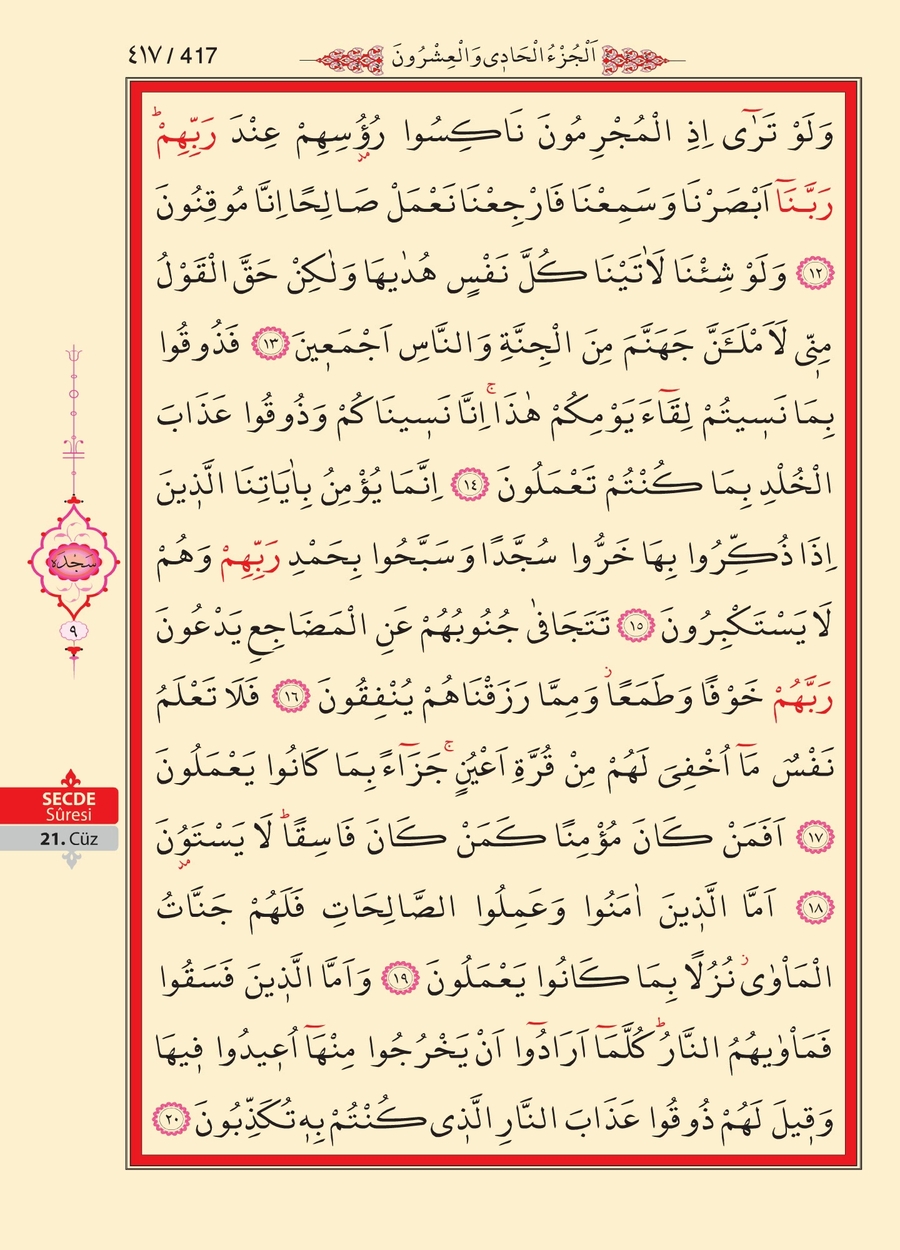 ٤١٧ / 417
اَلْجُزْءُ الْحَادِى وَالْعِشْرُونَ
وَلَوْ تَرٰٓى اِذِ الْمُجْرِمُونَ نَاكِسُوا رُؤُ۫سِهِمْ عِنْدَ رَبِّهِمْۜ
رَبَّنَٓا اَبْصَرْنَا وَسَمِعْنَا فَارْجِعْنَا نَعْمَلْ صَالِحًا اِنَّا مُوقِنُونَ
﴿١٢﴾ وَلَوْ شِئْنَا لَاٰتَيْنَا كُلَّ نَفْسٍ هُدٰيهَا وَلٰكِنْ حَقَّ الْقَوْلُ
مِنّ۪ى لَاَمْلَـَٔنَّ جَهَنَّمَ مِنَ الْجِنَّةِ وَالنَّاسِ اَجْمَع۪ينَ ﴿١٣﴾ فَذُوقُوا
بِمَا نَس۪يتُمْ لِقَٓاءَ يَوْمِكُمْ هٰذَاۚ اِنَّا نَس۪ينَاكُمْ وَذُوقُوا عَذَابَ
الْخُلْدِ بِمَا كُنْتُمْ تَعْمَلُونَ ﴿١٤﴾ اِنَّمَا يُؤْمِنُ بِاٰيَاتِنَا الَّذ۪ينَ
اِذَا ذُكِّرُوا بِهَا خَرُّوا سُجَّدًا وَسَبَّحُوا بِحَمْدِ رَبِّهِمْ وَهُمْ
لَا يَسْتَكْبِرُونَ ﴿١٥﴾ تَتَجَافٰى جُنُوبُهُمْ عَنِ الْمَضَاجِعِ يَدْعُونَ
رَبَّهُمْ خَوْفًا وَطَمَعًاۘ وَمِمَّا رَزَقْنَاهُمْ يُنْفِقُونَ ﴿١٦﴾ فَلَا تَعْلَمُ
نَفْسٌ مَٓا اُخْفِىَ لَهُمْ مِنْ قُرَّةِ اَعْيُنٍۚ جَزَٓاءً بِمَا كَانُوا يَعْمَلُونَ
﴿١٧﴾ اَفَمَنْ كَانَ مُؤْمِنًا كَمَنْ كَانَ فَاسِقًاۜ لَا يَسْتَوُ۫نَ
﴿١٨﴾ اَمَّا الَّذ۪ينَ اٰمَنُوا وَعَمِلُوا الصَّالِحَاتِ فَلَهُمْ جَنَّاتُ
الْمَاْوٰىۘ نُزُلًا بِمَا كَانُوا يَعْمَلُونَ ﴿١٩﴾ وَاَمَّا الَّذ۪ينَ فَسَقُوا
فَمَاْوٰيهُمُ النَّارُۜ كُلَّمَٓا اَرَادُٓوا اَنْ يَخْرُجُوا مِنْهَٓا اُع۪يدُوا ف۪يهَا
وَق۪يلَ لَهُمْ ذُوقُوا عَذَابَ النَّارِ الَّذ۪ى كُنْتُمْ بِه۪ تُكَذِّبُونَ ﴿٢٠﴾
سَجْدَه
٩
SECDE
Sûresi
21. Cüz